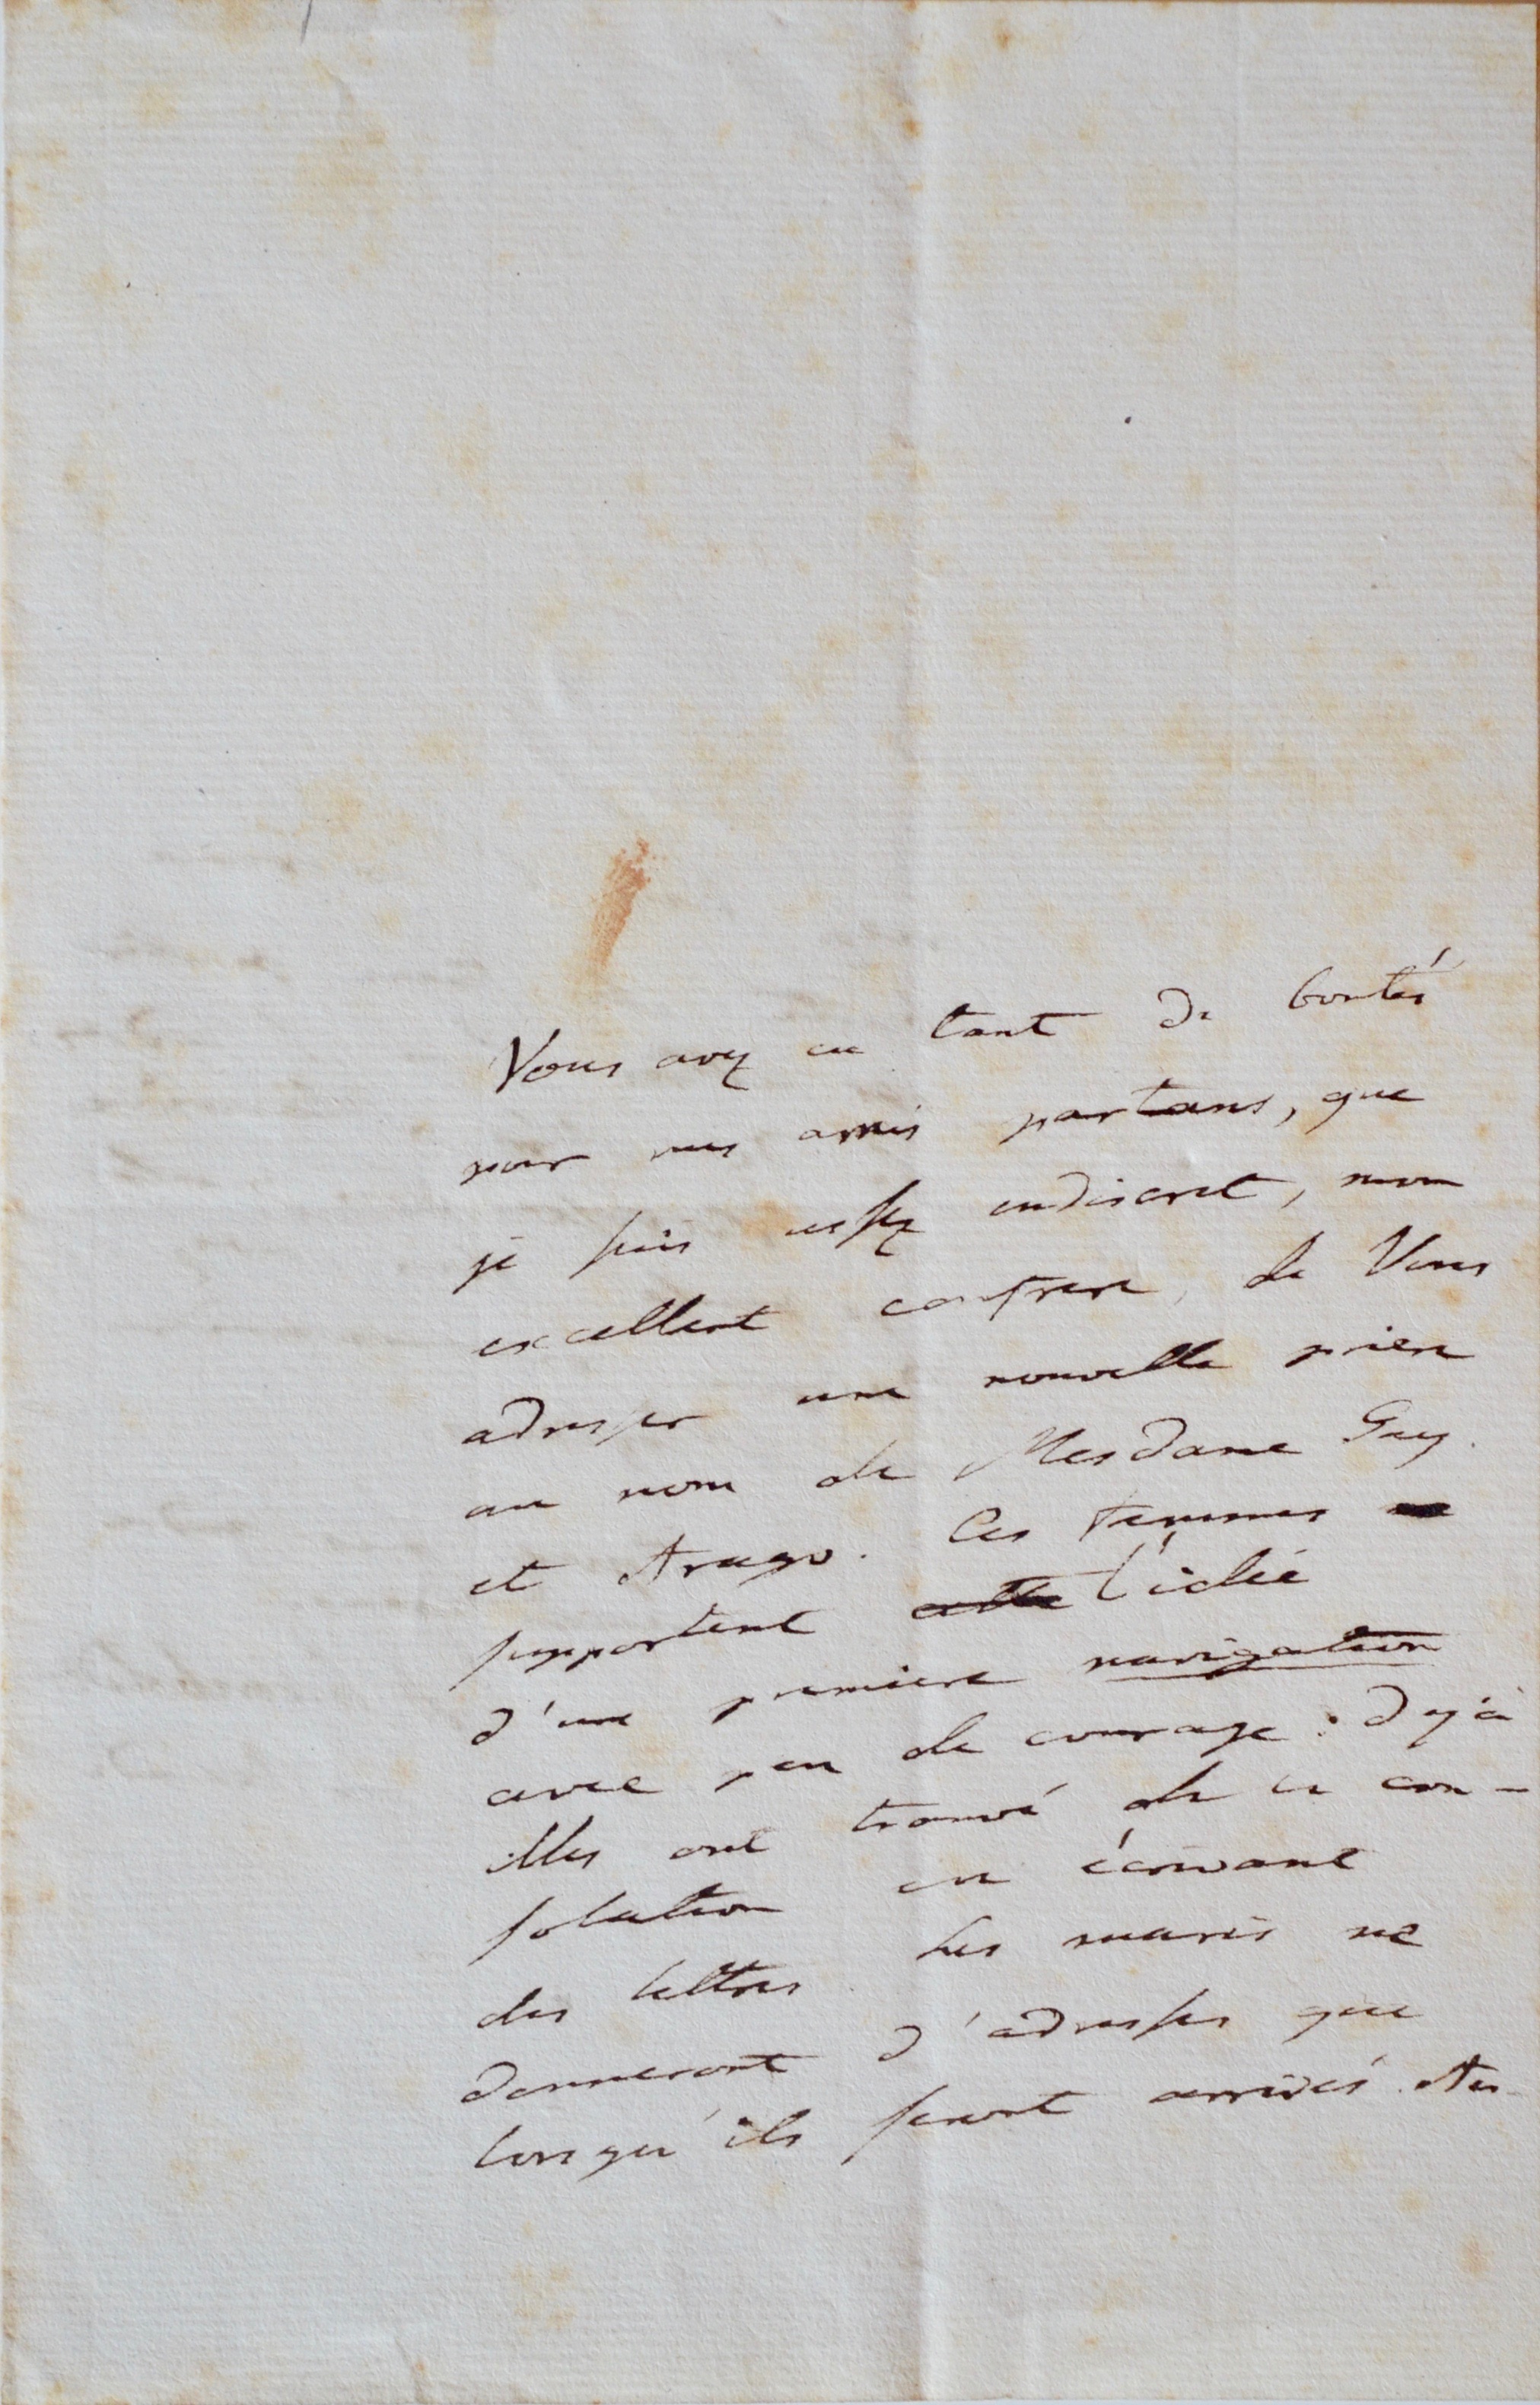 Vous avez eu tant de bontés
pour nos amis partans, que
je suis assez indiscret, mon
excellent confrere, de Vous
adresser une nouvelle priere
au nom de Mesdame Guy
et Arago. Ces femmes
supportent l'idée
d'une premiere navigation
avec peu de courage: dejà
elles ont trouvé de la con-
solation en écrivant
des lettres. Les maris ne
donneront d'adresses que
lorsqu'ils seront arrivés.